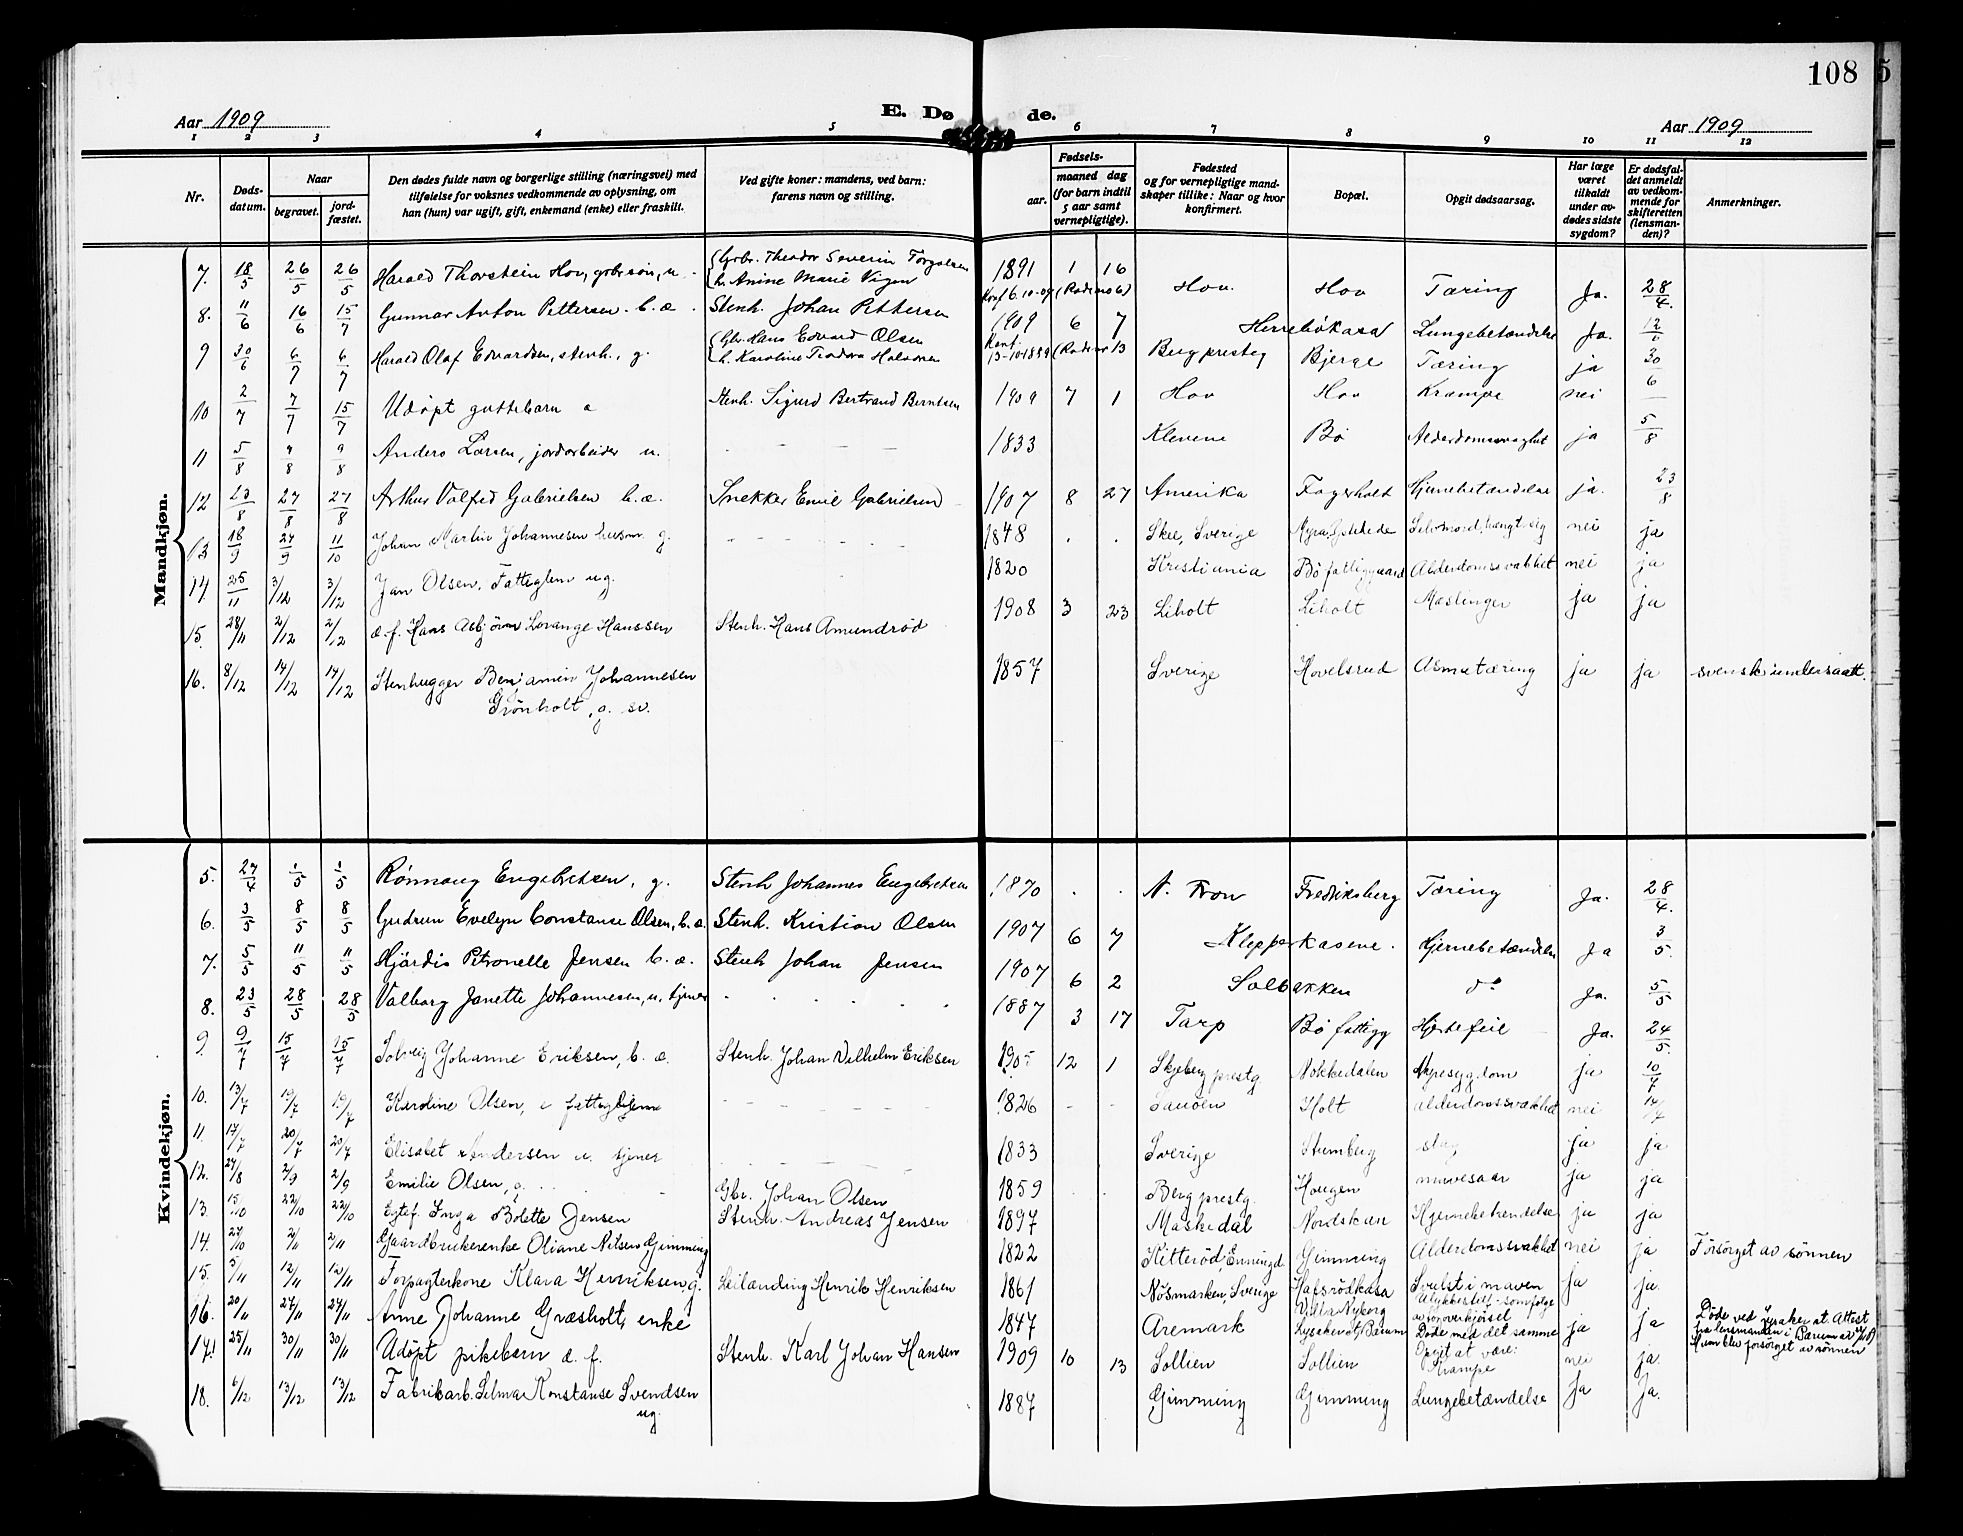 108
5
Aar 1909
E. Dø de.
Aar 1909
1 2 3 4 5 6 7 8 9 10 11 12
Nr.
Døds-
datum.
Naar
begravet.
jord-
fæstet.
Den dødes fulde navn og borgerlige stilling (næringsvei) med
tilføielse for voksnes vedkommende av oplysning, om
han (hun) var ugift, gift, enkemand (enke) eller fraskilt.
Ved gifte koner: mandens, ved barn:
farens navn og stilling.
Fødsels-
aar.
maaned dag
(for barn indtil
5 aar samt
vernepligtige).
Fødested
og for vernepligtige mand-
skaper tillike: Naar og hvor
konfirmert.
Bopæl.
Opgit dødsaarsag.
Har læge
været
tilkaldt
under av-
dødes sidste
sygdom?
Er dødsfal-
det anmeldt
av vedkom-
mende for
skifteretten
(lensman-
den)?
Anmerkninger.
Mandkjøn.
7. 18/5 26/5 26/5 Harald Thorstein Hov, gbr. søn, u. Gbr. Theodor Severin Torgalsen 1891 1 16 Hov. Hov Tæring Ja. 28/4.
h. Anine Marie Vigen Konf 6.10-07 (Rade no 6)
8. 11/6 16/6 15/7 Gunnar Anton Pettersen. b. æ. Stenh. Johan Pettersen 1909 6 7 Herrebøkasa Lungebetændelse Ja. 12/6
9 30/6 6/7 6/7 Harald Olaf Edvardsen, stenh., g. Gbr. Hans Edvard Olsen Konf. Berg prestg Bjerge Tæring ja 30/6
h. Karoline Teodora Halvorsen
10 2/7 7/7 15/7 Udøpt guttebarn Stenh. Sigurd Bertrand Berntsen 1909 7 1 Hov Hov Krampe nei —
11 5/8 9/8 9/8 Anders Larsen, jordarbeider u. 1833 Klevene Bø Alderdomssvaghet ja 5/8
12 23/8 27/8 27/8 Arthur Valfred Gabrielsen b. æ. Snekker Emil Gabrielsen 1907 8 27 Amerika Fagerholt Hjernebetændelse ja. 23/8
13 18/9 24/9 11/10 Johan Martin Johannesen husm. g. 1848 Skee, Sverige Myra, Selvmord, hængt sig nei ja
14 25/11 3/12 3/12 Jan Olsen. Fattiglem ug. 1820 Kristiania Bø fattiggaard Alderdomssvakhet nei ja
15. 28/11 2/12 2/12 æ. f. Hans Asbjørn Lorange Hanssen Stenh. Hans Amundrød 1908 3 23 Liholt Liholt Mæslinger ja ja
16. 8/12 14/12 14/12 Stenhugger Benjamin Johannesen 1857 Sverige Hovelsrud Asmatæring ja ja svensk undersaatt.
Grönholt, g. sv.
Kvindekjøn.
5. 27/4 1/5 1/5 Rønnaug Engebretsen, g. Stenh Johannes Engebretsen 1870 N. Fron Fredriksberg Tæring Ja. 28/4.
6. 3/5 8/5 8/5 Gudrun Evelyn Constanse Olsen, b. æ. Stenh. Kristian Olsen 1907 6 7 Klepperkasene. Hjernebetændelse Ja 3/5.
7. 5/5 11/5 11/5 Hjørdis Petronelle Jensen b. æ. Stenh Johan Jensen 1907 6 2 Solbakken do Ja. 5/5
8. 23/5 28/5 28/5 Valborg Janette Johannesen, u. tjener 1887 3 17 Tarp Bø fattigg Hjertefeil Ja. 24/5.
9. 9/7 15/7 15/7 Solveig Johanne Eriksen, b. æ. Stenh. Johan Vilhelm Eriksen 1905 12 1 Skjeberg prestg. Nokkedalen Nyresygdom ja 10/7
10. 13/7 19/7 19/7 Karoline Olsen, fattiglem 1826 Sanöen Holt Alderdomssvakhet nei 14/7
11. 17/7 20/7 20/7 Elisabet Andersen u. tjener 1833 Sverige Stumberg slag ja ja
12. 27/8 2/9 2/9 Emilie Olsen, g. Gbr. Johan Olsen 1859 Berg prestg. Hougen mavesaar ja ja
13. 15/10 22/10 22/10 Egtef. Inga Bolette Jensen Stenh. Andreas Jensen 1897 Maskedal Nordskau Hjernebetændelse ja ja
14. 27/10 2/11 2/11 Gaardbrukerenke Oliane Nilsen Gimming 1822 Kitteröd, Enningd. Gimming Alderdomssvakhet nei ja Forsörget av sönnen
15. 5/11 12/11 12/11 Forpagterkone Klara Henriksen, g. Leilænding Henrik Henriksen 1861 Nösmarken, Sverige Hafsrödkasa Svulst i maven ja ja.
16. 20/11 27/11 27/11 Anne Johanne Græsholt, enke 1847 Aremark Villa Nyborg Lysaker st/Bærum Ulykkestilf. som følge av togoverkjørsel ja ja Döde ved Lysaker st. Attest
fra lensmanden i Bærum av
Hun blev forsörget av sönnen
17. 25/11 30/11 30/11 Udöpt pikebarn æ. f. Stenh. Karl Johan Hansen 1909 10 13 Sollien Sollien Døde med det samme Opgit at være: Krampe nei ja.
18. 6/12 13/12 13/12 Fabrikarb. Selma Konstanse Svendsen 1887 Gimming Gimming Lungebetændelse Ja Ja.
ug.